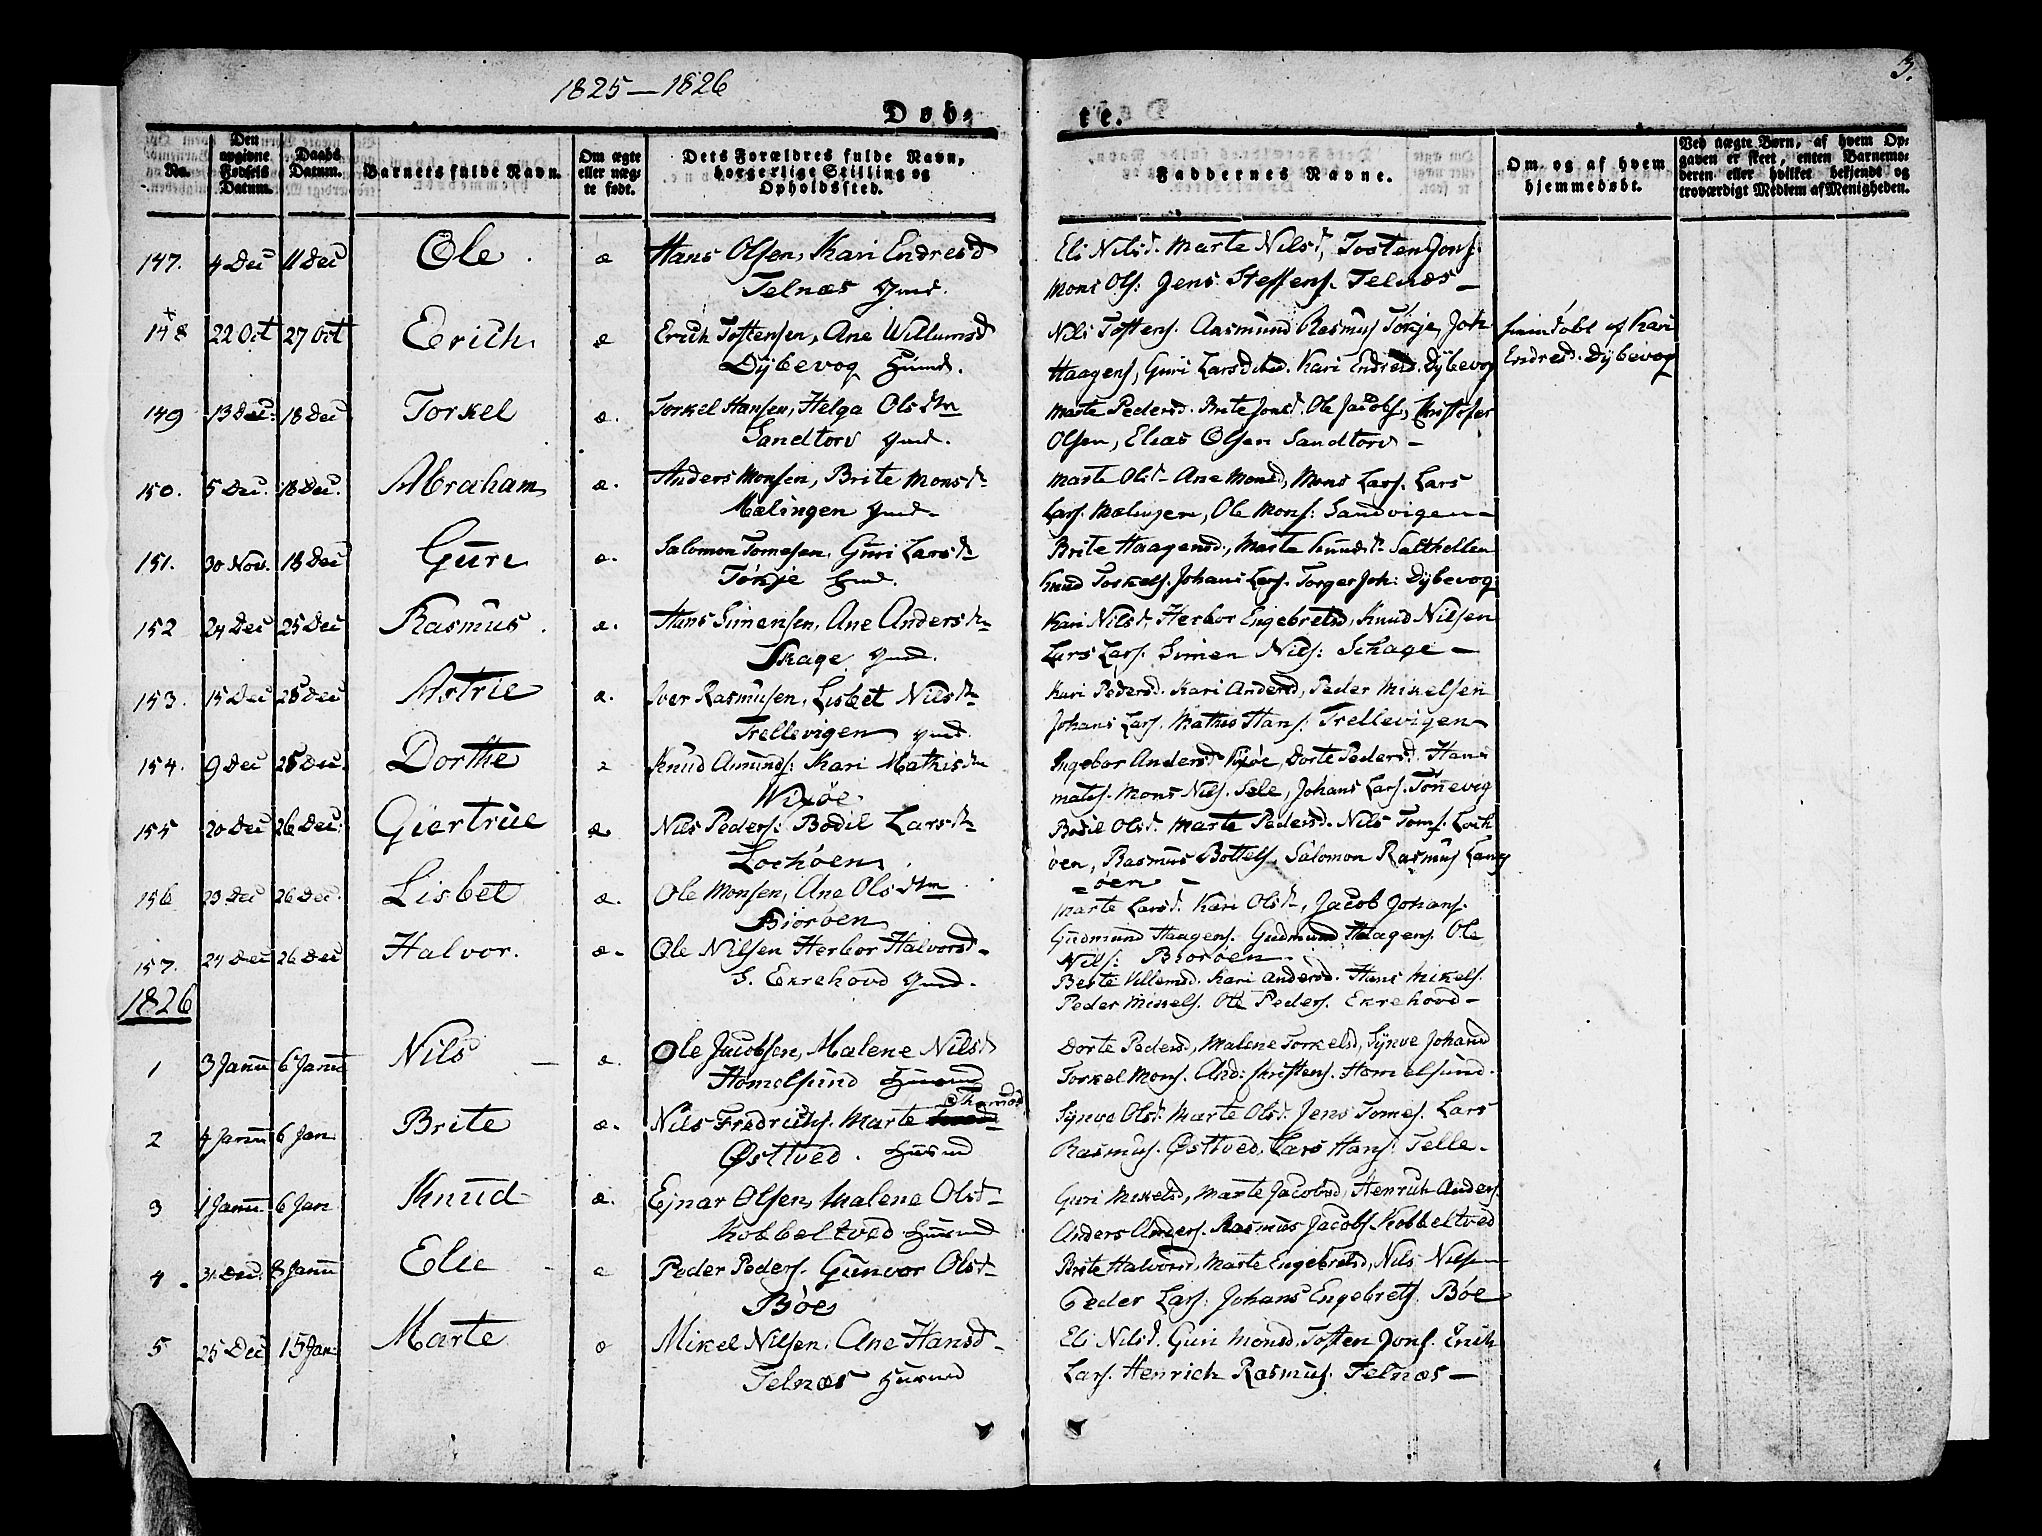 1825–1826
3.
Døb-
te.
No.
Den
opgivne
Fødsels
Datum.
Daabs
Datum.
Barnets fulde Navn.
Om ægte
eller uæg-
te født.
Dets Forældres fulde Navn,
borgerlige Stilling og
Opholdssted.
Faddernes Navne.
Om og af hvem
hjemmedøbt.
Ved uægte Børn, af hvem Op-
gaven er skeet, enten Barnemo-
deren eller hvilket bekjendt og
troværdigt Medlem af Menigheden.
147. 4 Dec 11 Dec Ole. æ Hans Olsen, Kari Endresd
Telnæs Gmd.
Eli Nilsd. Marte Nilsd, Tosten Jons.
Mons Ols. Jens Steffens. Telnæs –
148 22 Oct 27 Oct Erich. æ Erich Tostensen, Ane Willumsd
Dybevog Huusm.
Nils Tostens. Aasmund Rasmus Tøkje, Joh
Haagens, Guri Larsd. Kari Endresd. Dybevog
hiemdøbt af Kari
Endresd. Dybevog
149 13 Dec. 18 Dec Torkel æ. Torkel Hansen, Helga Olsdtr
Sandtorv Gmd.
Marte Pedersd. Brite Jonsd. Ole Jacobs, Christofer
Olsen, Elias Olsen Sandtorv –
150. 5 Dec. 18 Dec. Abraham æ. Anders Monsen, Brite Monsd.
Mælingen Gmd.
Marte Olsd. Ane Monsd, Mons Lars. Lars
Lars. Mælingen, Ole Mons: Sandvigen –
151. 30 Nov. 18 Dec Guri æ. Salomon Tomesen. Guri Larsd.
Tøkje Gmd.
Brite Haagensd., Marte Knudsd. Salthellen
Knud Torkels. Johans Lars. Torger Joh: Dybevog
152 24 Dec 25 Dec Rasmus. æ. Hans Simensen, Ane Andersdr
Skage Gmd.
Kari Nilsd, Herbor Engebretsd, Knud Nilsen
Lars Lars. Simen Nils: Schage –
153. 15 Dec 25 Dec Astrie æ. Iver Rasmusen, Lisbet Nilsdr
Trellevigen Gmd.
Kari Pedersd. Kari Andersd, Peder Mikelsen
Johans Lars. Mathis Hans. Trellevigen
154. 9 Dec 25 Dec. Dorthe æ Knud Amunds: Kari Mathisdr
Wixøe.
Ingebor Andersd Vixøe, Dorte Pedersd. Hans
Mats. Mons Nils. Sele, Johans Lars. Tønnevig
155 20 Dec 26 Dec. Giertrue æ. Nils Peders: Bodil Larsdr
Lochøen.
Bodil Olsd. Marte Pedersd. Nils Toms. Loch
øen, Rasmus Bottels, Salomon Rasmus Lang
=øen –
156 23 Dec 26 Dec. Lisbet æ. Ole Monsen, Ane Olsdtr
Biorøen
Marte Larsd. Kari Olsd., Jacob Johans.
Gudmund Haagens. Gudmund Haagens. Ole
Nils: Biorøen.
157. 24 Dec 26 Dec Halvor. æ. Ole Nilsen Herbor Halvorsd.
S. Ekrehovd Gmd.
Berte Villemsd. Kari Andersd. Hans Mikels.
Peder Mikels. Ole Peders. Ekrehovd –
1826
1 3 Janu 6 Janu Nils – æ. Ole Jacobsen, Malene Nilsd.
Homelsund Huusmd
Dorte Pedersd, Malene Torkelsd, Synve Johansd
Torkel Mons. And: Christens. Homelsund.
2 4 Janu 6 Jan. Brite æ. Nils Fredrichs. Marte
Østtved. Huusmd
Synve Olsd. Marte Olsd. Jens Tomes. Lars
Rasmus. Østtved. Lars Hans: Telle –
3 1 Janu 6 Jan Knud æ. Ejnar Olsen, Malene Olsd.
Kobbeltved Huusmd
Guri Mikelsd, Marte Jacobsd, Henrich Anders.
Anders Anders. Rasmus Jacobs Kobbeltved
4. 31 Dec. 8 Janu Elie – æ Peder Peders. Gunvor Olsd.
Bøe
Brite Halvorsd, Marte Engebretsd, Nils Nilsen
Peder Lars. Johans Engebrets. Bøe
5 25 Dec 15 Jan. Marte æ Mikel Nilsen. Ane Hansd.
Telnæs Huusmd
Eli Nilsd. Guri Monsd. Tosten Jons. Erich
Lars. Henrich Rasmus. Telnæs –